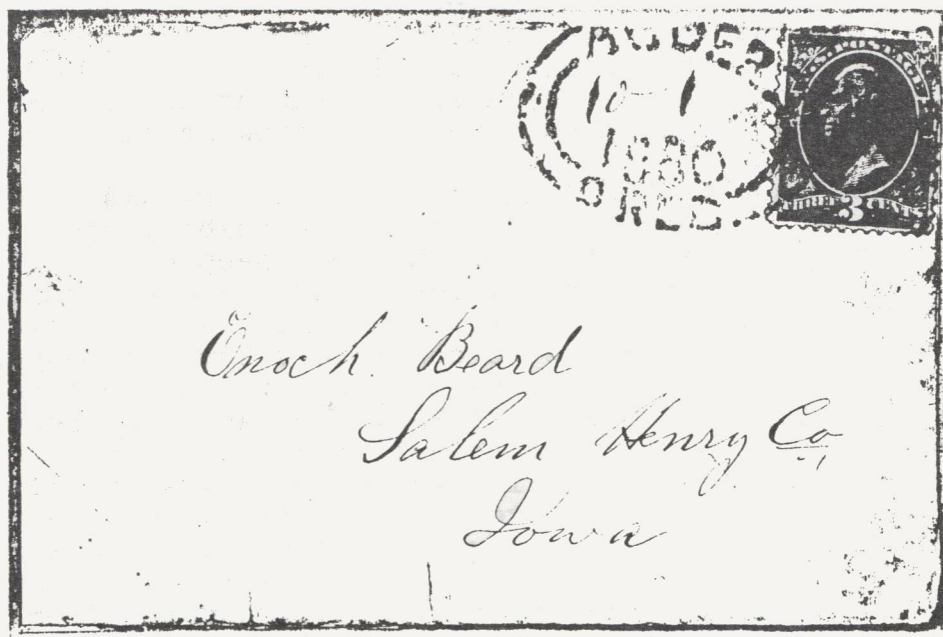 10 - 1
1880
OREG.
U.S. POSTAGE
THREE 3 CENTS
Enoch Beard
Salem Henry Co.,
Iowa